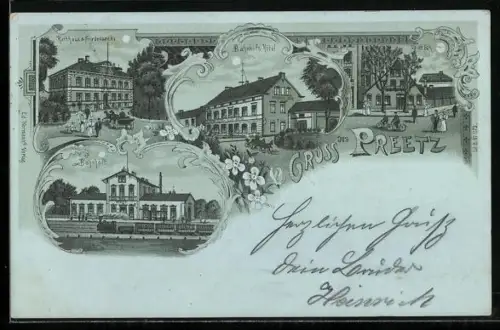 Rathhaus u. Friedenseiche
Bahnhofs Hôtel
Bahnhof
GRUSS AUS PREETZ
Herzlichen Gruß
dein Bruder
Heinrich